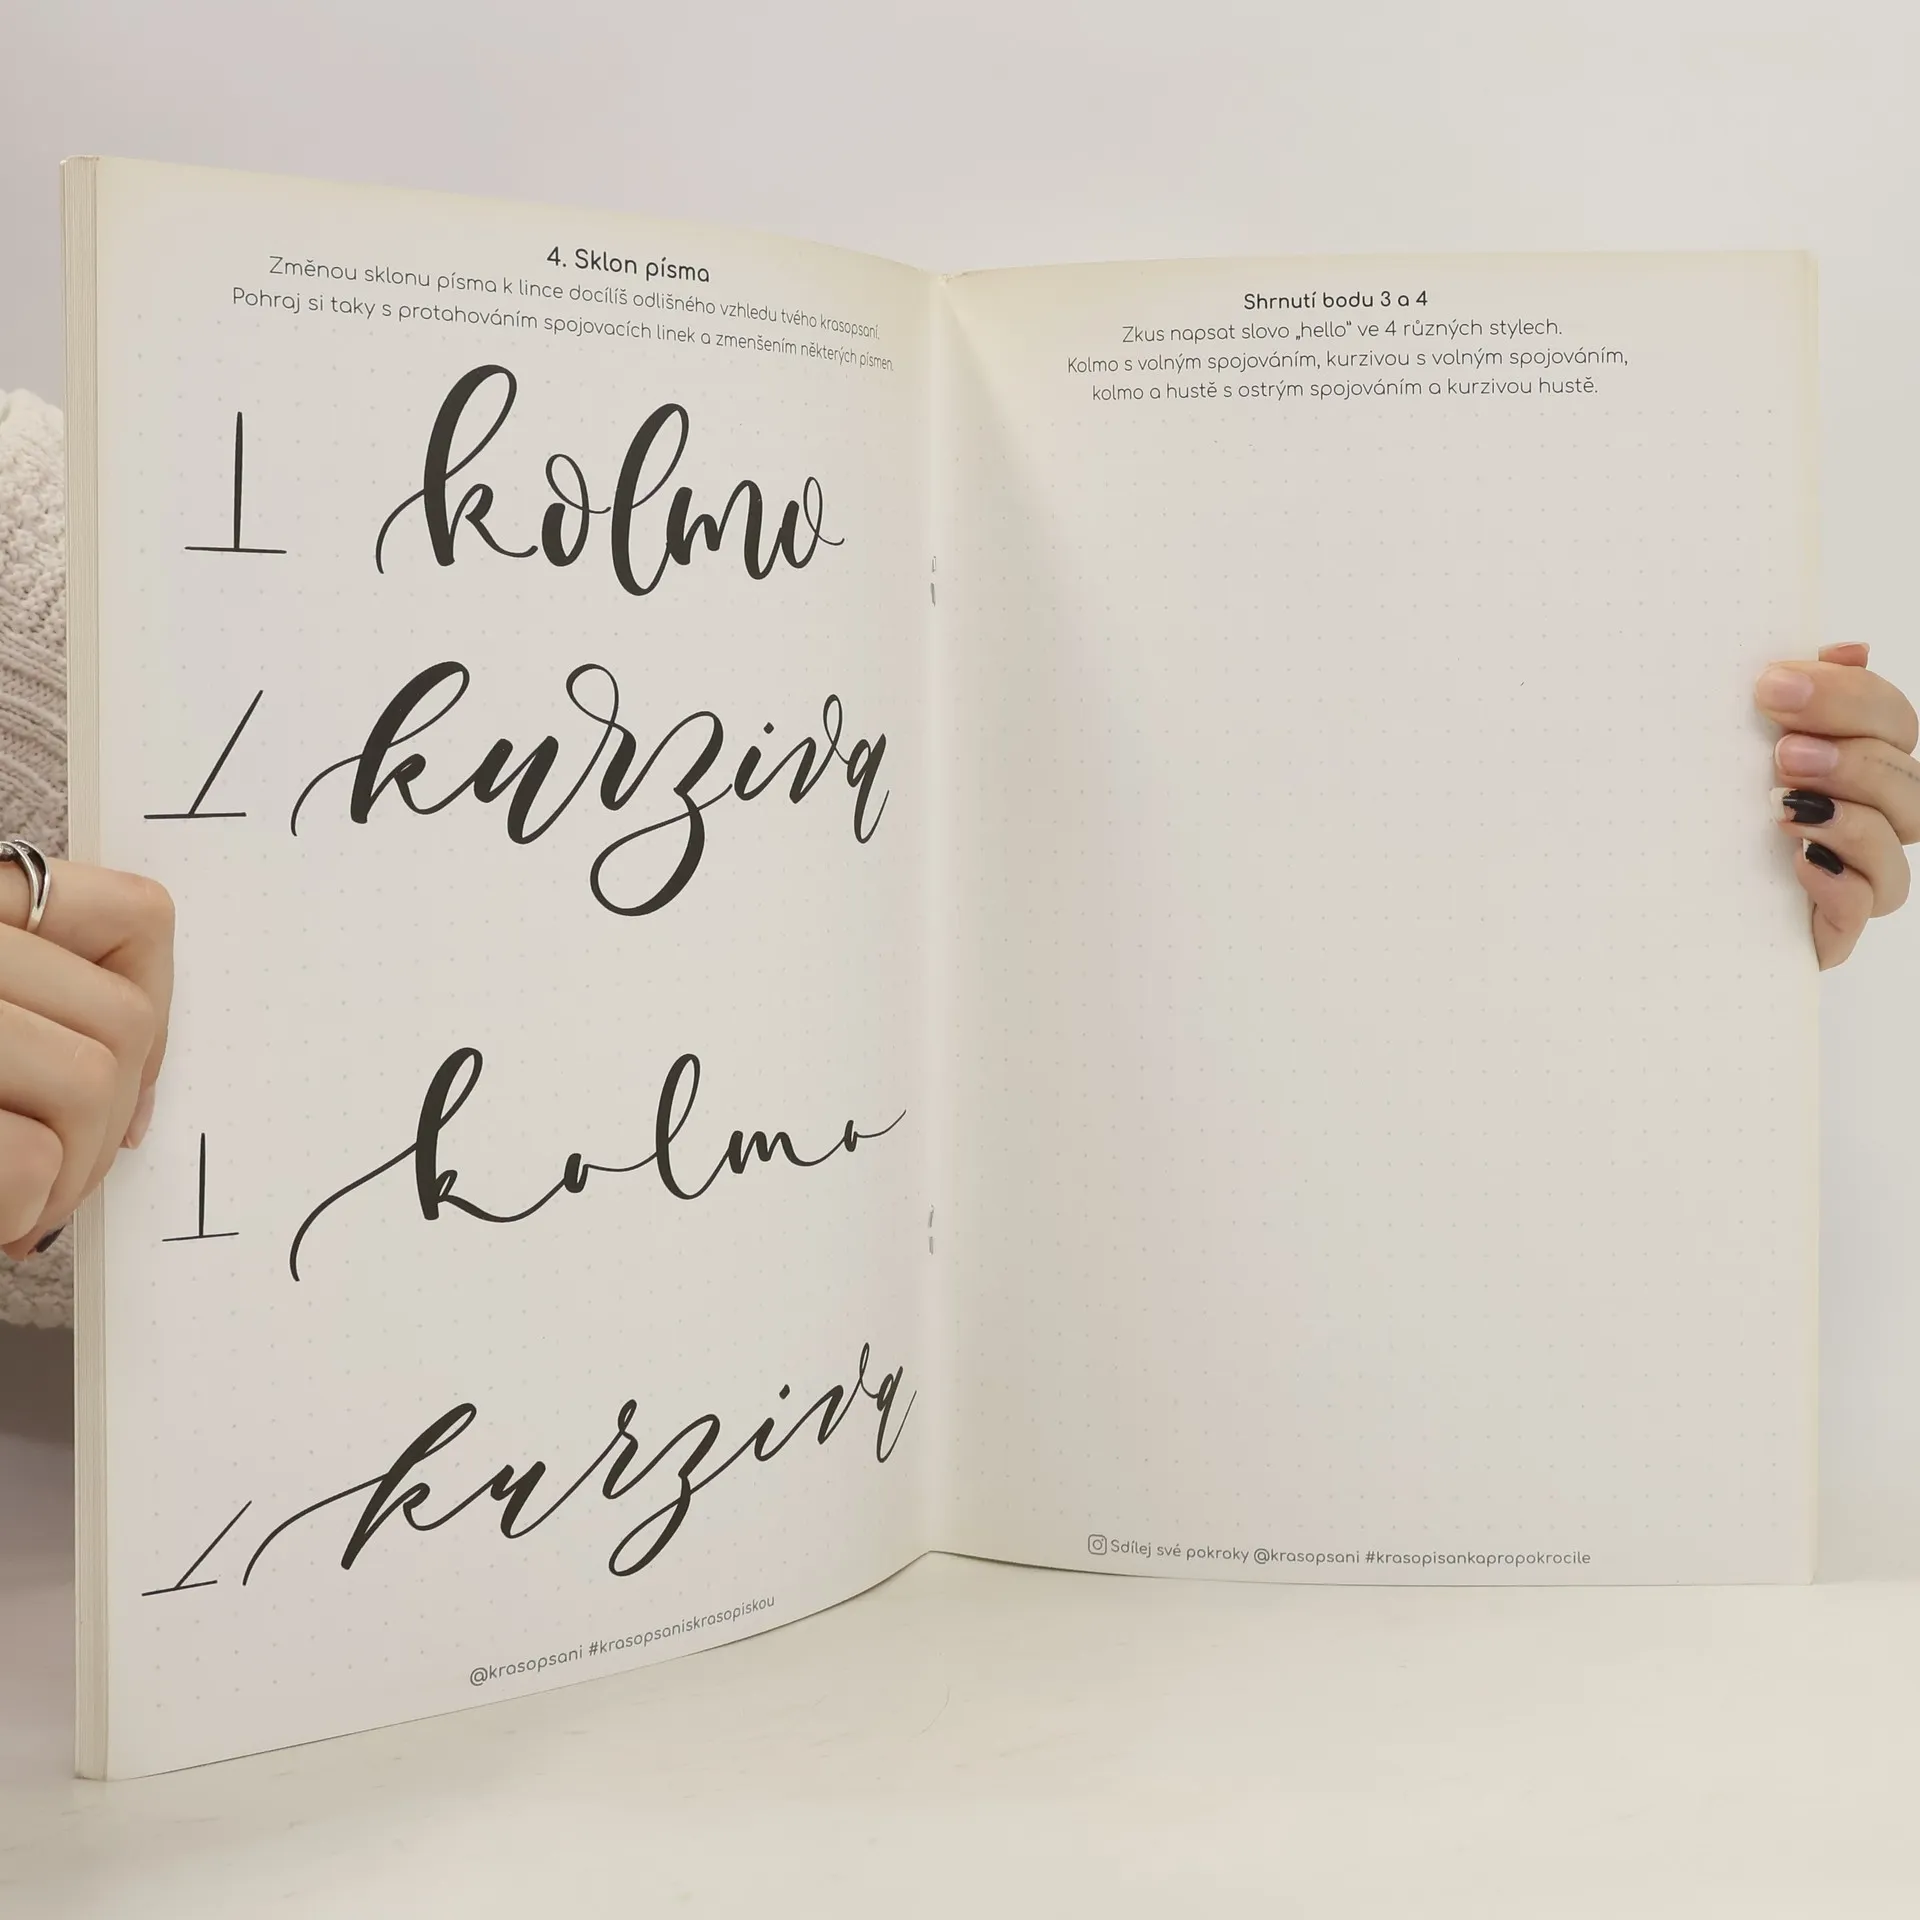 4. Sklon písma
Změnou sklonu písma k lince docílíš odlišného vzhledu tvého krasopsaní.
Pohraj si taky s protahováním spojovacích linek a zmenšením některých písmen.
kolmo
kurziva
kolmo
kurziva
@krasopsani #krasopsaniskrasopiskou
Shrnutí bodu 3 a 4
Zkus napsat slovo „hello" ve 4 různých stylech.
Kolmo s volným spojováním, kurzivou s volným spojováním,
kolmo a hustě s ostrým spojováním a kurzivou hustě.
Sdílej své pokroky @krasopsani #krasopisankapropokrocile